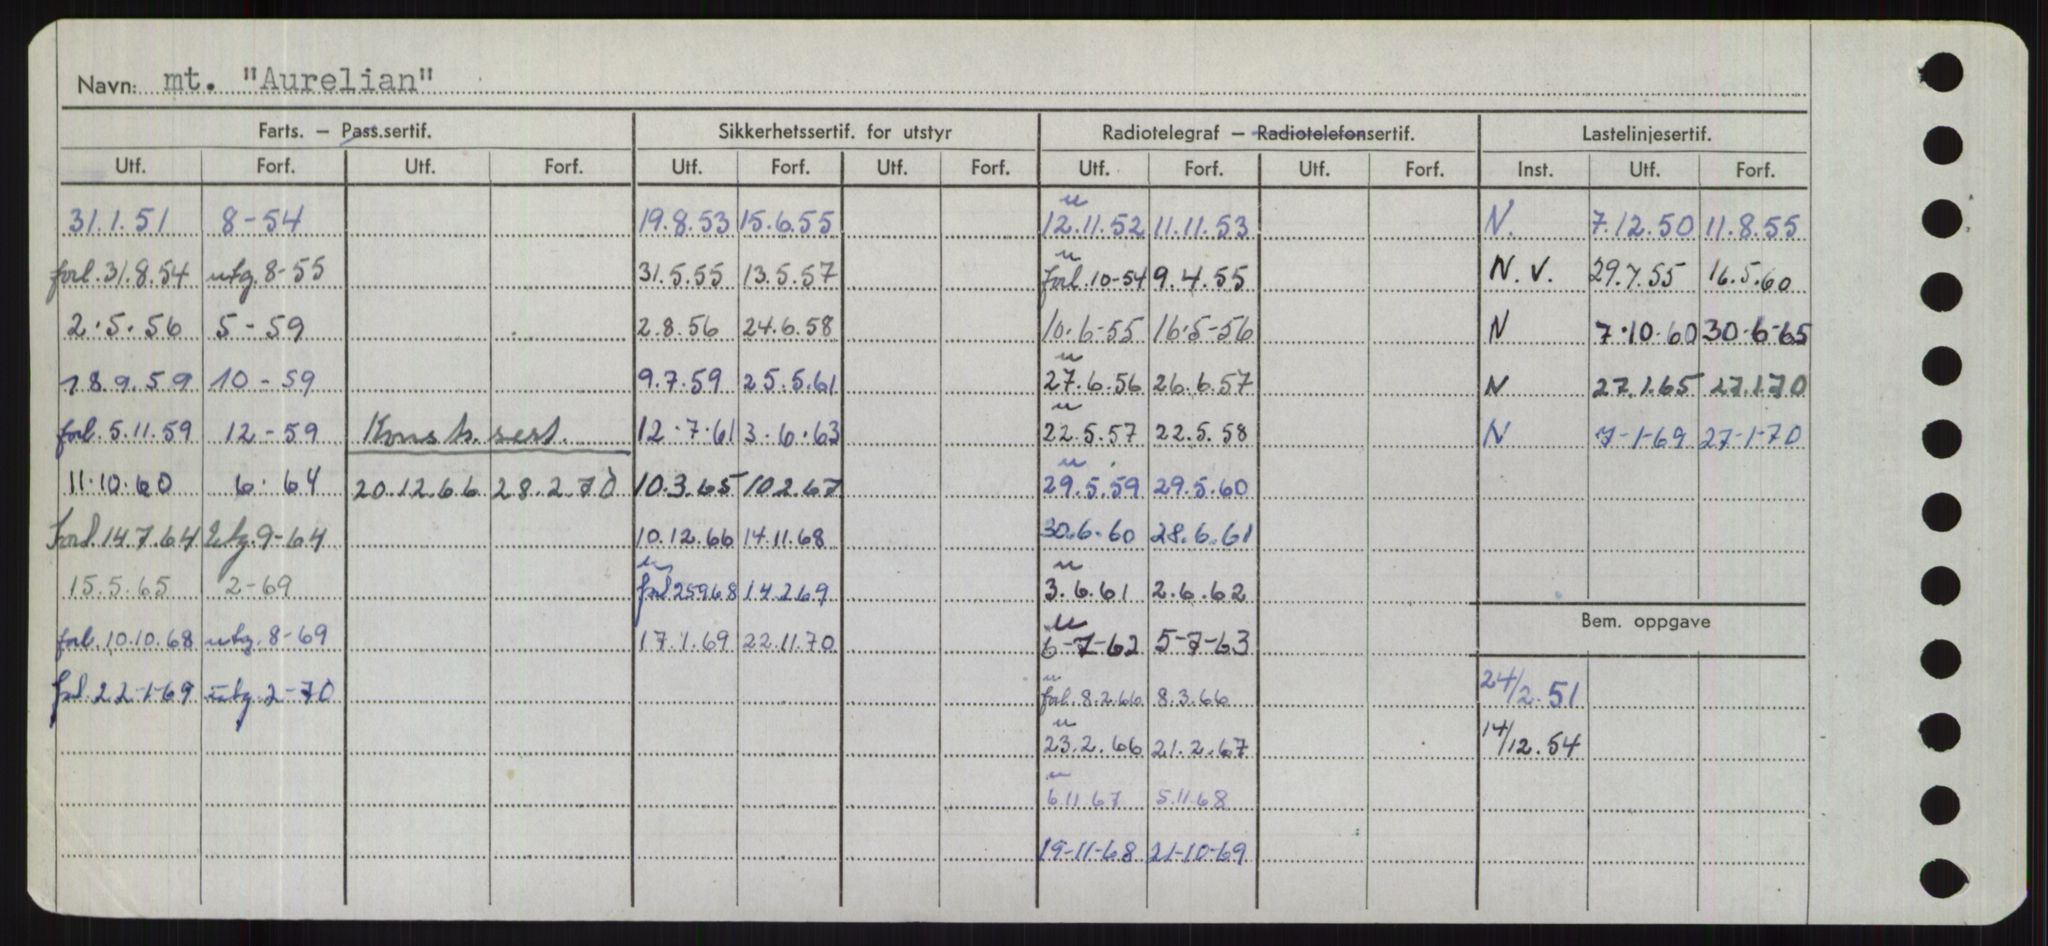 Navn: mt. "Aurelian"
Farts. – Pass.sertif. Sikkerhetssertif. for utstyr Radiotelegraf – Radiotelefonsertif. Lastelinjesertif.
Utf. Forf. Utf. Forf. Utf. Forf. Utf. Forf. Utf. Forf. Utf. Forf. Inst. Utf. Forf.
31.1.51 8-54 19.8.53 15.6.55 u 12.11.52 11.11.53 N. 7.12.50 11.8.55
forl.31.8.54 utg.8-55 31.5.55 13.5.57 u forl.10-54 9.4.55 N.V. 29.7.55 16.5.60
2.5.56 5-59 2.8.56 24.6.58 10.6-55 16.5-56 N 7.10.60 30.6-65
18.9.59 10-59 9.7.59 25.5.61 u 27.6.56 26.6.57 N 27.1.65 27.1.70
forl.5.11.59 12-59 Konstr.sert. 12.7.61 3.6.63 u 22.5.57 22.5.58 N 7-1-69 27-1-70
11.10.60 6.64 20.12.66 28.2.70 10.3.65 10.2.67 u 29.5.59 29.5.60
Forl.14.7.64 Utg.9-64 10.12.66 14.11.68 30.6.60 28.6.61
15.5.65 2-69 u forl 25968 14269 u 3.6.61 2.6.62
forl.10.10.68 utg.8-69 17.1.69 22.11.70 u 6-7-62 5-7-63
Bem. oppgave
forl.22-1-69 utg.2-70 u forl.8.2.66 8.3.66 24/2.51
u 23.2.66 21.2.67 14/12.54
u 6.11.67 5.11.68
19-11-68 21-10-69